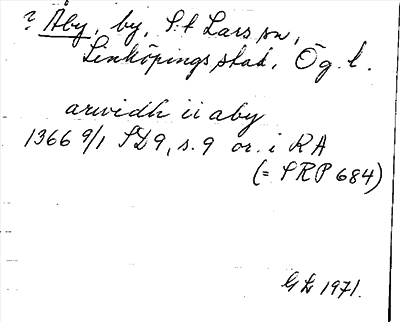 ? Åby, by, S:t Lars sn,
Linköpings stad, Ög. l.
arvidh ii aby
1366 9/1 SD9, s. 9 or. i RA
(= SRP 684)
GL 1971.